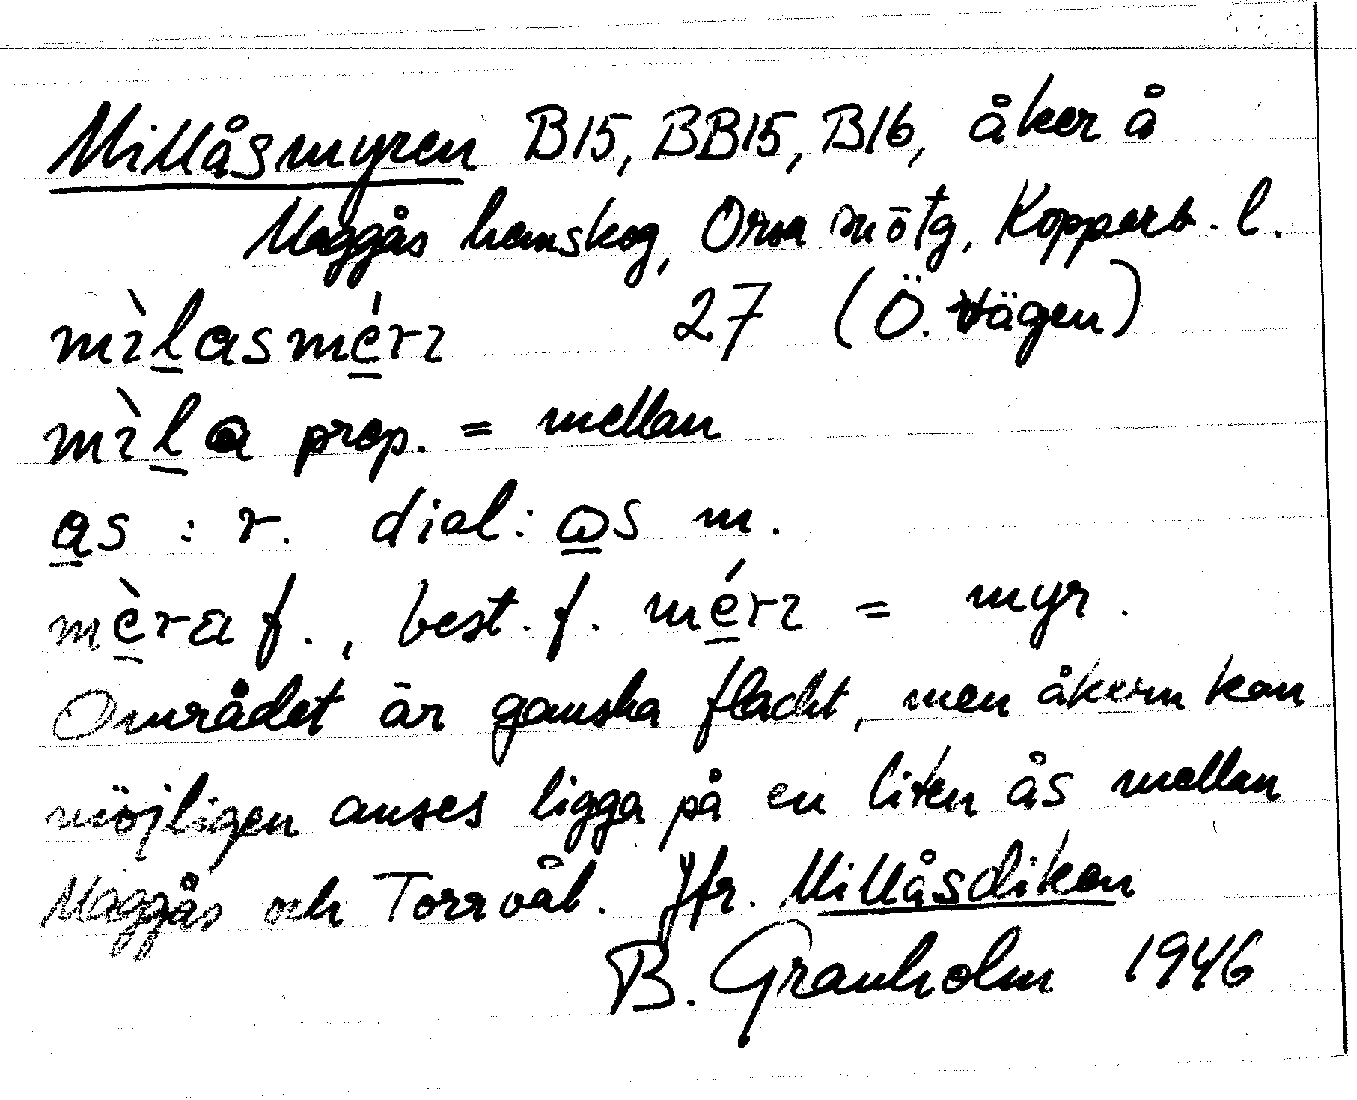 Millåsmyren B15, BB15, B16, åker å
Maggås hemskog, Orsa Kopparb. l.
mìl̠asmé̠rɿ 27 (Ö. Vägen)
mìl̠a prep. = mellan
a̠s : r. dial: ɷ̠s m.
mè̠ra f., best. f. mé̠rɿ = myr.
Området är ganska flackt, men åkern kan
möjligen anses ligga på en liten ås mellan
Maggås och Torrvål. Jfr. Millåsdiken
B. Granholm 1946